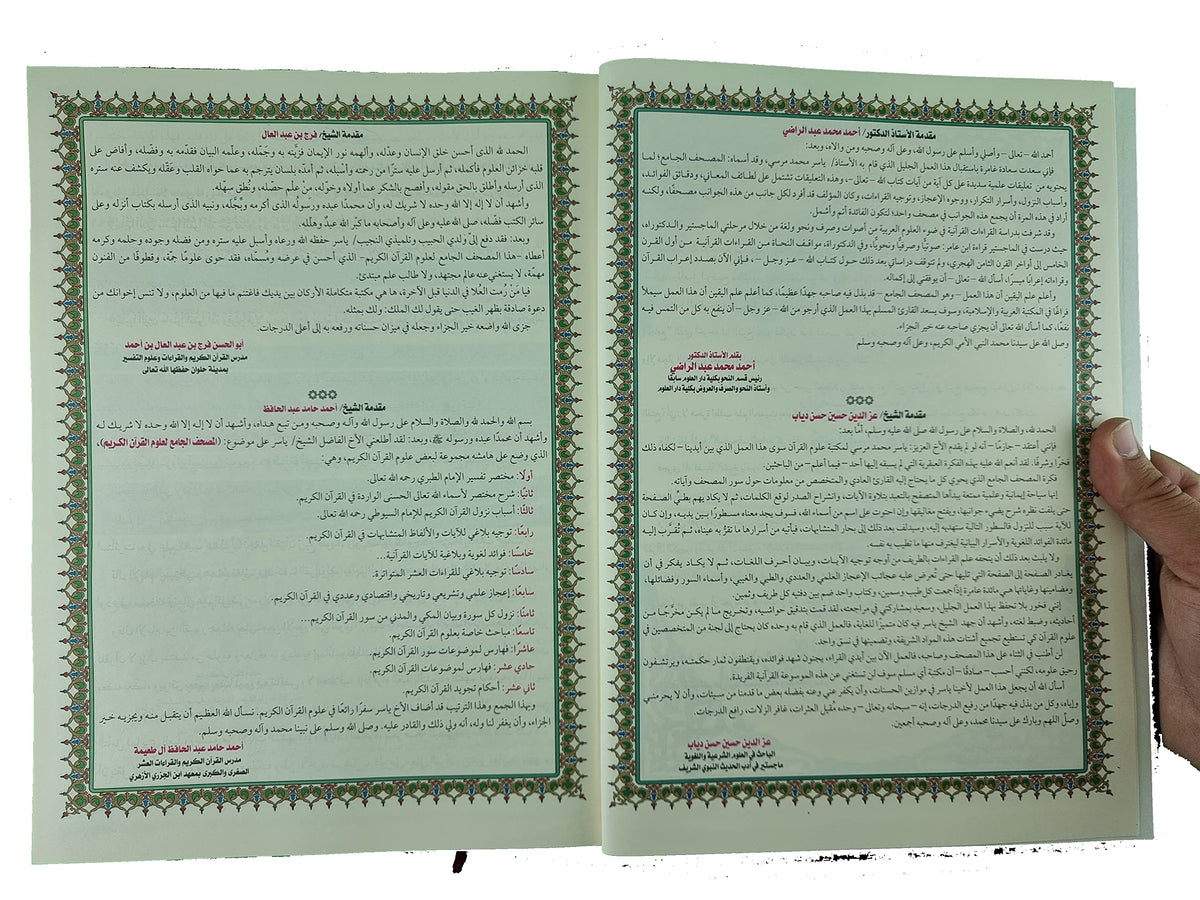 مقدمة الأستاذ الدكتور/ أحمد محمد عبد الراضي
أحمد الله – تعالى – وأصلي وأسلم على رسول الله، وعلى آله وصحبه ومن والاه، وبعد:
فإني سعدت سعادة غامرة باستقبال هذا العمل الجليل الذي قام به الأستاذ/ ياسر محمد مرسي، وقد أسماه: المصحف الجامع؛ لما
يحتويه من تعليقات علمية سديدة على كل آية من آيات كتاب الله – تعالى –، وهذه التعليقات تشتمل على لطائف المعاني، ودقائق الفوائد،
وأسباب النزول، وأسرار التكرار، ووجوه الإعجاز، وتوجيه القراءات، وكان المؤلف قد أفرد لكل جانب من هذه الجوانب مصحفًا، ولكنه
أراد في هذه المرة أن يجمع هذه الجوانب في مصحف واحد؛ لتكون الفائدة أتم وأشمل.
وقد شرفت بدراسة القراءات القرآنية في ضوء العلوم العربية من أصوات وصرف ونحو ولغة من خلال مرحلتي الماجستير والدكتوراه،
حيث درست في الماجستير قراءة ابن عامر: صوتيًّا وصرفيًّا ونحويًّا، وفي الدكتوراة، مواقف النحاة من القراءات القرآنية من أول القرن
الخامس إلى أواخر القرن الثامن الهجري، ولم تتوقف دراساتي بعد ذلك حول كتاب الله – عز وجل –، فإني الآن بصدد إعراب القرآن
وقراءاته إعرابًا ميسرًا، أسأل الله – أن يوفقني إلى إكماله.
وأعلم علم اليقين أن هذا العمل – وهو المصحف الجامع – قد بذل فيه صاحبه جهدًا عظيمًا، كما أعلم علم اليقين أن هذا العمل سيملأ
فراغًا في المكتبة العربية والإسلامية، وسوف يسعد القارئ المسلم بهذا العمل الذي أرجو من الله – عز وجل – أن ينفع به كل من التمس فيه
نفعًا، كما أسأل الله أن يجزي صاحبه عنه خير الجزاء.
وصل الله على سيدنا محمد النبي الأمي الكريم، وعلى آله وصحبه وسلم
بقلم الأستاذ الدكتور
أحمد محمد عبد الراضي
رئيس قسم النحو بكلية دار العلوم سابقًا
وأستاذ النحو والصرف والعروض بكلية دار العلوم
مقدمة الشيخ/ عز الدين حسين حسن دياب
الحمد لله، والصلاة والسلام على رسول الله صلى الله عليه وسلم. أمَّا بعد:
فإنني أعتقد – جازمًا – أنه لو لم يقدم الأخ العزيز: ياسر محمد مرسي لمكتبة علوم القرآن سوى هذا العمل الذي بين أيدينا – لكفاه ذلك
فخرًا وشرفًا. لقد أنعم الله عليه بهذه الفكرة العبقرية التي لم يسبقه إليها أحد – فيما أعلم – من الباحثين.
فكرة المصحف الجامع الذي يحوي كل ما يحتاج إليه القارئ العادي والمتخصص من معلومات حول سور المصحف وآياته.
إنها سياحة إيمانية وعلمية ممتعة يبدأها المتصفح بالتعبد بتلاوة الآيات، وانشراح الصدر لوقع الكلمات، ثم لا يكاد يهم بطيِّ الصفحة
حتى يلفت نظره شرح يضيء جوانبها، ويفتح مغاليقها وإن احتوت على اسم من أسماء الله، فسوف يجد معناه مسطورًا بين يديه، وإن كان
للآية سبب للنزول فالسطور التالية ستهديه إليه، وسيدلف بعد ذلك إلى بحار المتشابهات، فيأتيه من أسرارها ما تقرُّ به عيناه، ثم تُقرَّب إليه
مائدة الفوائد اللغوية والأسرار البيانية ليغترف منها ما تطيب به نفسه.
ولا يلبث بعد ذلك أن يتحفه علم القراءات بالطريف من أوجه توجيه الآيات، وبيان أحرف اللغات، ثم لا يكاد يفكر في أن
يغادر الصفحة إلى الصفحة التي تليها حتى تُعرض عليه عجائب الإعجاز العلمي والعددي والطبي والغيبي، وأسماء السور وفضائلها،
ومضامينها وغاياتها هي مائدة عامرة إذًا جمعت كل طيب وسمين، وكتاب واحد ضم بين دفتيه كل طريف وثمين.
إنني فخور بلا تحفظ بهذا العمل الجليل، وسعيد بمشاركتي في مراجعته، لقد قمت بتدقيق حواشيه، وتخريج ما لم يكن مخرَّجًا من
أحاديثه، وضبط لغته، وأشهد أن جهد الشيخ ياسر فيه كان متميزًا للغاية، فالعمل الذي قام به وحده كان يحتاج إلى لجنة من المتخصصين في
علوم القرآن كي تستطيع تجميع أشتات هذه المواد الشريفة، وتضمينها في نسق واحد.
لن أطنب في الثناء على هذا المصحف وصاحبه، فالعمل الآن بين أيدي القراء، يجنون شهد فوائده، ويقتطفون ثمار حكمته، ويرتشفون
رحيق علومه، لكني أحسب – صادقًا – أن مكتبة أي مسلم سوف لن تستغني عن هذه الموسوعة القرآنية الفريدة.
أسأل الله أن يجعل هذا العمل لأخينا ياسر في موازين الحسنات، وأن يكفر عني وعنه بفضله بعض ما قدمنا من سيئات، وأن لا يحرمني
وإياه، وكل من بذل فيه جهدًا من رفيع الدرجات، إنه – سبحانه وتعالى – وحده مُقيل العثرات، غافر الزلات، رافع الدرجات.
وصلِّ اللهم وبارك على سيدنا محمد، وعلى آله وصحبه أجمعين.
عز الدين حسين حسن دياب
الباحث في العلوم الشرعية واللغوية
ماجستير في أدب الحديث النبوي الشريف
مقدمة الشيخ/ فرج بن عبد العال
الحمد لله الذى أحسن خلق الإنسان وعدله، وألهمه نور الإيمان فزيَّنه به وجَمَله، وعلَّمه البيان فقدَّمه به وفضَّله، وأفاض على
قلبه خزائن العلوم فأكمله، ثم أرسل عليه سترًا من رحمته وأسْبله، ثم أمدَّه بلسان يترجم به عما حواه القلب وعَقَله ويكشف عنه ستره
الذى أرسله وأطلق بالحق مقوله، وأفصح بالشكر عما أولاه وخوَّله، منْ علْم حصَّله، ونُطق سهَّله.
وأشهد أن لا إله إلا الله وحده لا شريك له، وأن محمدًا عبده ورسولُه الذى أكرمه وبَّجله، ونبيه الذى أرسله بكتاب أنزله وعلى
سائر الكتب فضّله، صلى الله عليه وعلى آله وأصحابه ما كبّر الله عبدٌ وهلّله.
وبعد: فقد دفع إليَّ ولدي الحبيب وتلميذي النجيب/ ياسر حفظه الله ورعاه وأسبل عليه ستره ومن فضله وجوده وحلمه وكرمه
أعطاه –هذا المصحف الجامع لعلوم القرآن الكريم– الذي أحسن في عرضه ومُسمَّاه، فقد حوى علومًا جمَّة، وقطوفًا من الفنون
مهمَّة، لا يستغني عنه عالم مجتهد، ولا طالب علم مبتدئ.
فيا مَنْ رُمت العُلا في الدنيا قبل الآخرة، ها هي مكتبة متكاملة الأركان بين يديك فاغتنم ما فيها من العلوم، ولا تنس إخوانك من
دعوة صادقة بظهر الغيب حتى يقول لك الملك: ولك بمثله.
جزى الله واضعه خير الجزاء وجعله في ميزان حسناته ورفعه به إلى أعلى الدرجات.
أبو الحسن فرج بن عبد العال بن أحمد
مدرس القرآن الكريم والقراءات وعلوم التفسير
بمدينة حلوان حفظها الله تعالى
مقدمة الشيخ/ أحمد حامد عبد الحافظ
بسم الله والحمد لله والصلاة والسلام على رسول الله وآله وصحبه ومن تبع هداه، وأشهد أن لا إله إلا الله وحده لا شريك له
وأشهد أن محمدًا عبده ورسوله ﷺ، وبعد: لقد أطلعني الأخ الفاضل الشيخ/ ياسر على موضوع: (المصحف الجامع لعلوم القرآن الكريم)،
الذي وضع على هامشه مجموعة لبعض علوم القرآن الكريم، وهي:
أولًا: مختصر تفسير الإمام الطبري رحمه الله تعالى.
ثانيًا: شرح مختصر لأسماء الله تعالى الحسنى الواردة في القرآن الكريم.
ثالثًا: أسباب نزول القرآن الكريم للإمام السيوطي رحمه الله تعالى.
رابعًا: توجيه بلاغي للآيات والألفاظ المتشابهات في القرآن الكريم.
خامسًا: فوائد لغوية وبلاغية للآيات القرآنية...
سادسًا: توجيه بلاغي للقراءات العشر المتواترة.
سابعًا: إعجاز علمي وتشريعي وتاريخي واقتصادي وعددي في القرآن الكريم.
ثامنًا: نزول كل سورة وبيان المكي والمدني من سور القرآن الكريم...
تاسعًا: مباحث خاصة بعلوم القرآن الكريم.
عاشرًا: فهارس لموضوعات سور القرآن الكريم.
حادي عشر: فهارس لموضوعات القرآن الكريم.
ثاني عشر: أحكام تجويد القرآن الكريم.
وبهذا الجمع وهذا الترتيب قد أضاف الأخ ياسر سفرًا رائعًا في علوم القرآن الكريم. نسأل الله العظيم أن يتقبل منه ويجزيه خير
الجزاء، وأن يغفر لنا وله، أنه ولي ذلك والقادر عليه. وصل الله وسلم على نبينا محمد وآله وصحبه وسلم.
أحمد حامد عبد الحافظ آل طعيمة
مدرس القرآن الكريم والقراءات العشر
الصغرى والكبرى بمعهد ابن الجزري الأزهري